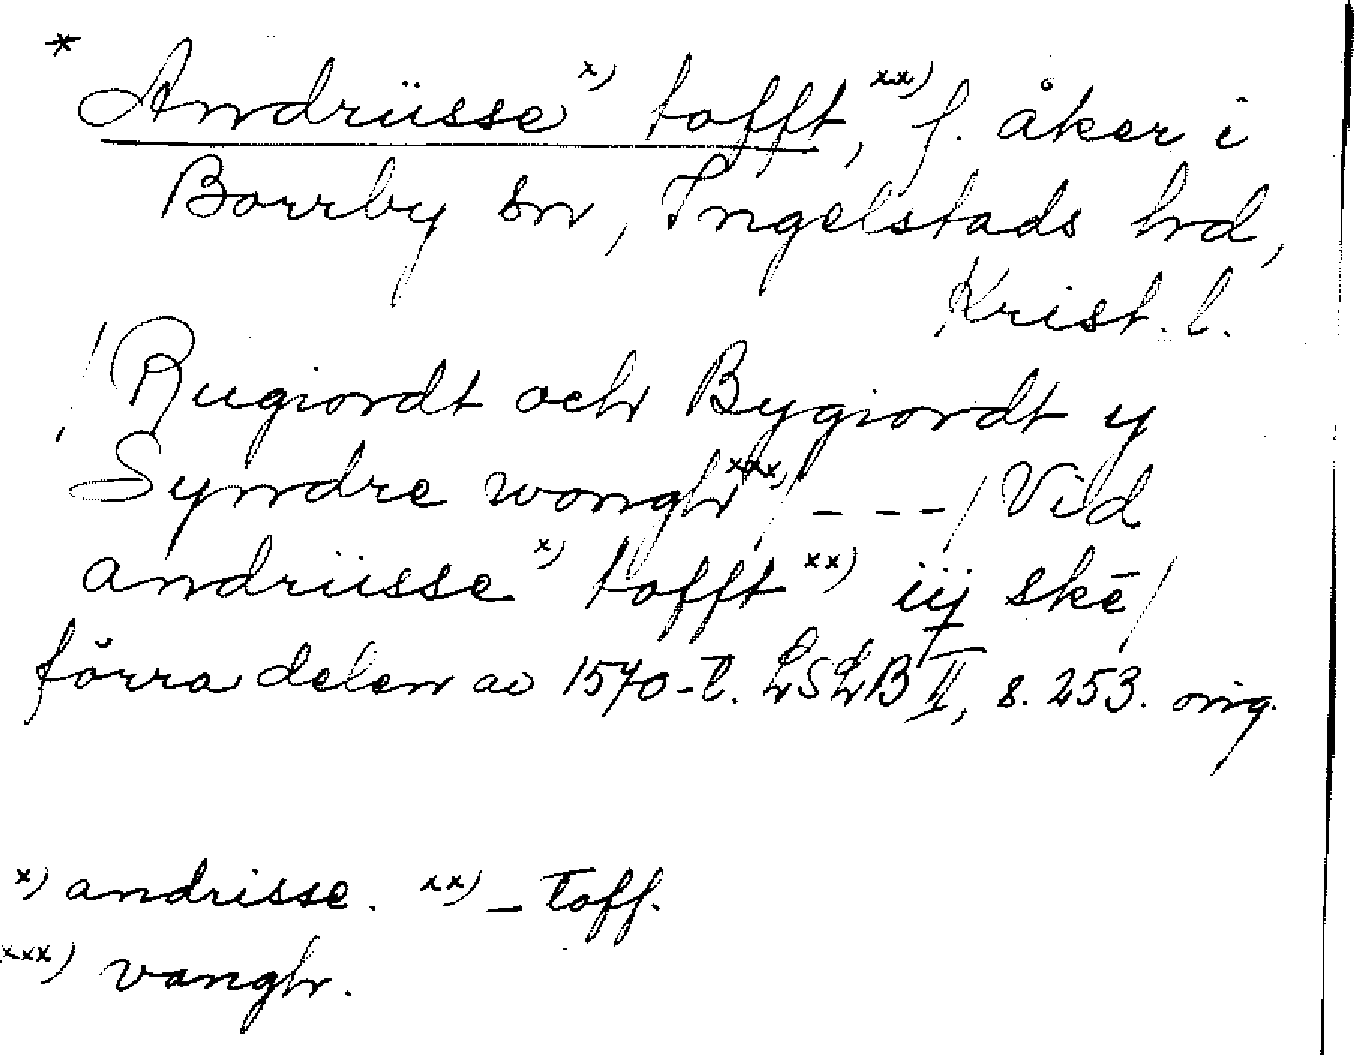 * Andrüsse x) tofft, xx) f. åker i
Borrby sn, Ingelstads hd,
Krist. l.
/Rugiordt och Bygiordt y
Syndre wongh xxx)/ - - - / Vid
andrüsse x) tofft xx) iij skē/
förra delen av 1570-t. LSLB II, s. 253. orig.
x) andrisse. xx) - toff.
xxx) vangh.